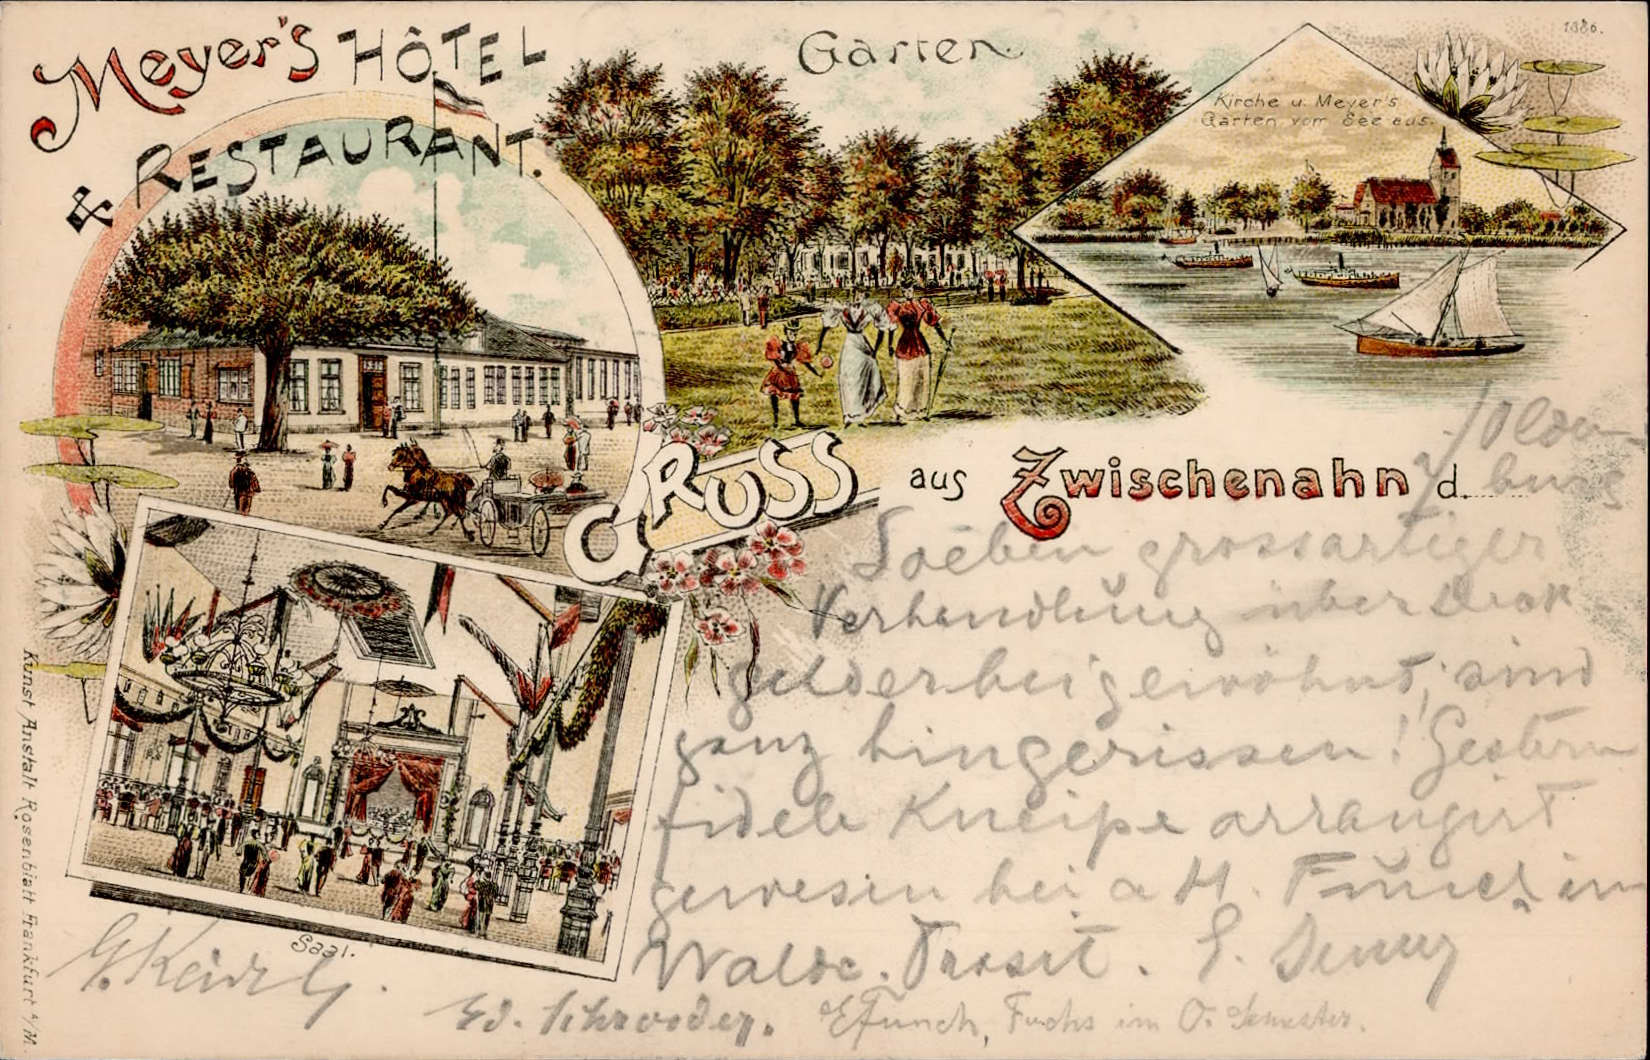 1886.
Meyer's HÔTEL
& RESTAURANT.
Garten
Kirche u. Meyer's
Garten vom See aus.
GRUSS aus Zwischenahn d.
i/Olden-
burg
Soeben grossartiger
Verhandlung über
gelder beigewohnt, sind
ganz hingerissen! Gestern
fidele Kneipe arrangirt
gewesen bei a H. Funch im
Walde. Prosit.
Saal.
Ed. Schroeder. E Funch, Fuchs im O. Semester.
Kunst Anstalt Rosenblatt Frankfurt a/M.